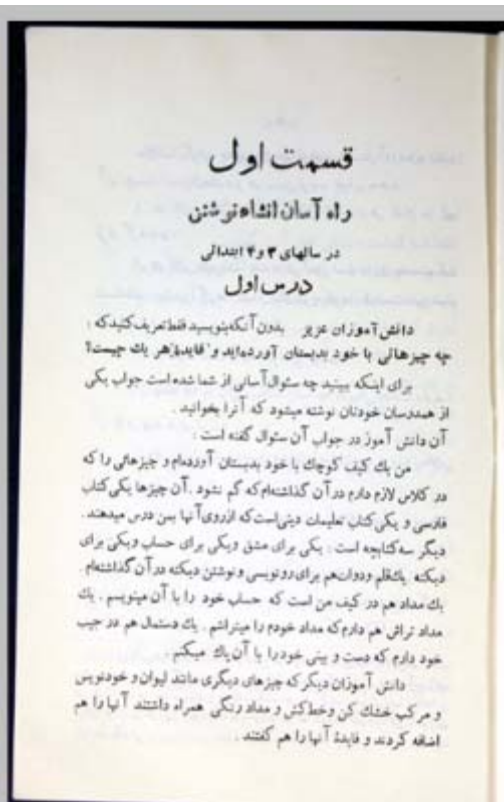 قسمت اول
راه آسان انشاء نوشتن
در سالهای ۳ و ۴ ابتدائی
درس اول
دانش آموزان عزیز بدون آنکه بنویسید فقط تعریف کنید که :
چه چیزهائی با خود بدبستان آورده‌اید و فایدهٔ هر یك چیست؟
برای اینکه ببینید چه سئوال آسانی از شما شده است جواب یکی
از همدرسان خودتان نوشته میشود که آنرا بخوانید .
آن دانش آموز در جواب آن سئوال گفته است :
من یك کیف کوچك با خود بدبستان آورده‌ام و چیزهائی را که
در کلاس لازم دارم در آن گذاشته‌ام که گم نشود . آن چیزها یکی کتاب
فارسی و یکی کتاب تعلیمات دینی است که از روی آنها بمن درس میدهند .
دیگر سه کتابچه است : یکی برای مشق و یکی برای حساب و یکی برای
دیکته یك قلم و دوات هم برای رونویسی و نوشتن دیکته در آن گذاشته‌ام .
یك مداد هم در کیف من است که حساب خود را با آن مینویسم . یك
مداد تراش هم دارم که مداد خودم را میتراشم . یك دستمال هم در جیب
خود دارم که دست و بینی خود را با آن پاك میکنم
دانش آموزان دیگر که چیزهای دیگری مانند لیوان و خودنویس
و مرکب خشك کن و خط کش و مداد رنگی همراه داشتند آنها را هم
اضافه کردند و فایدهٔ آنها را هم گفتند .